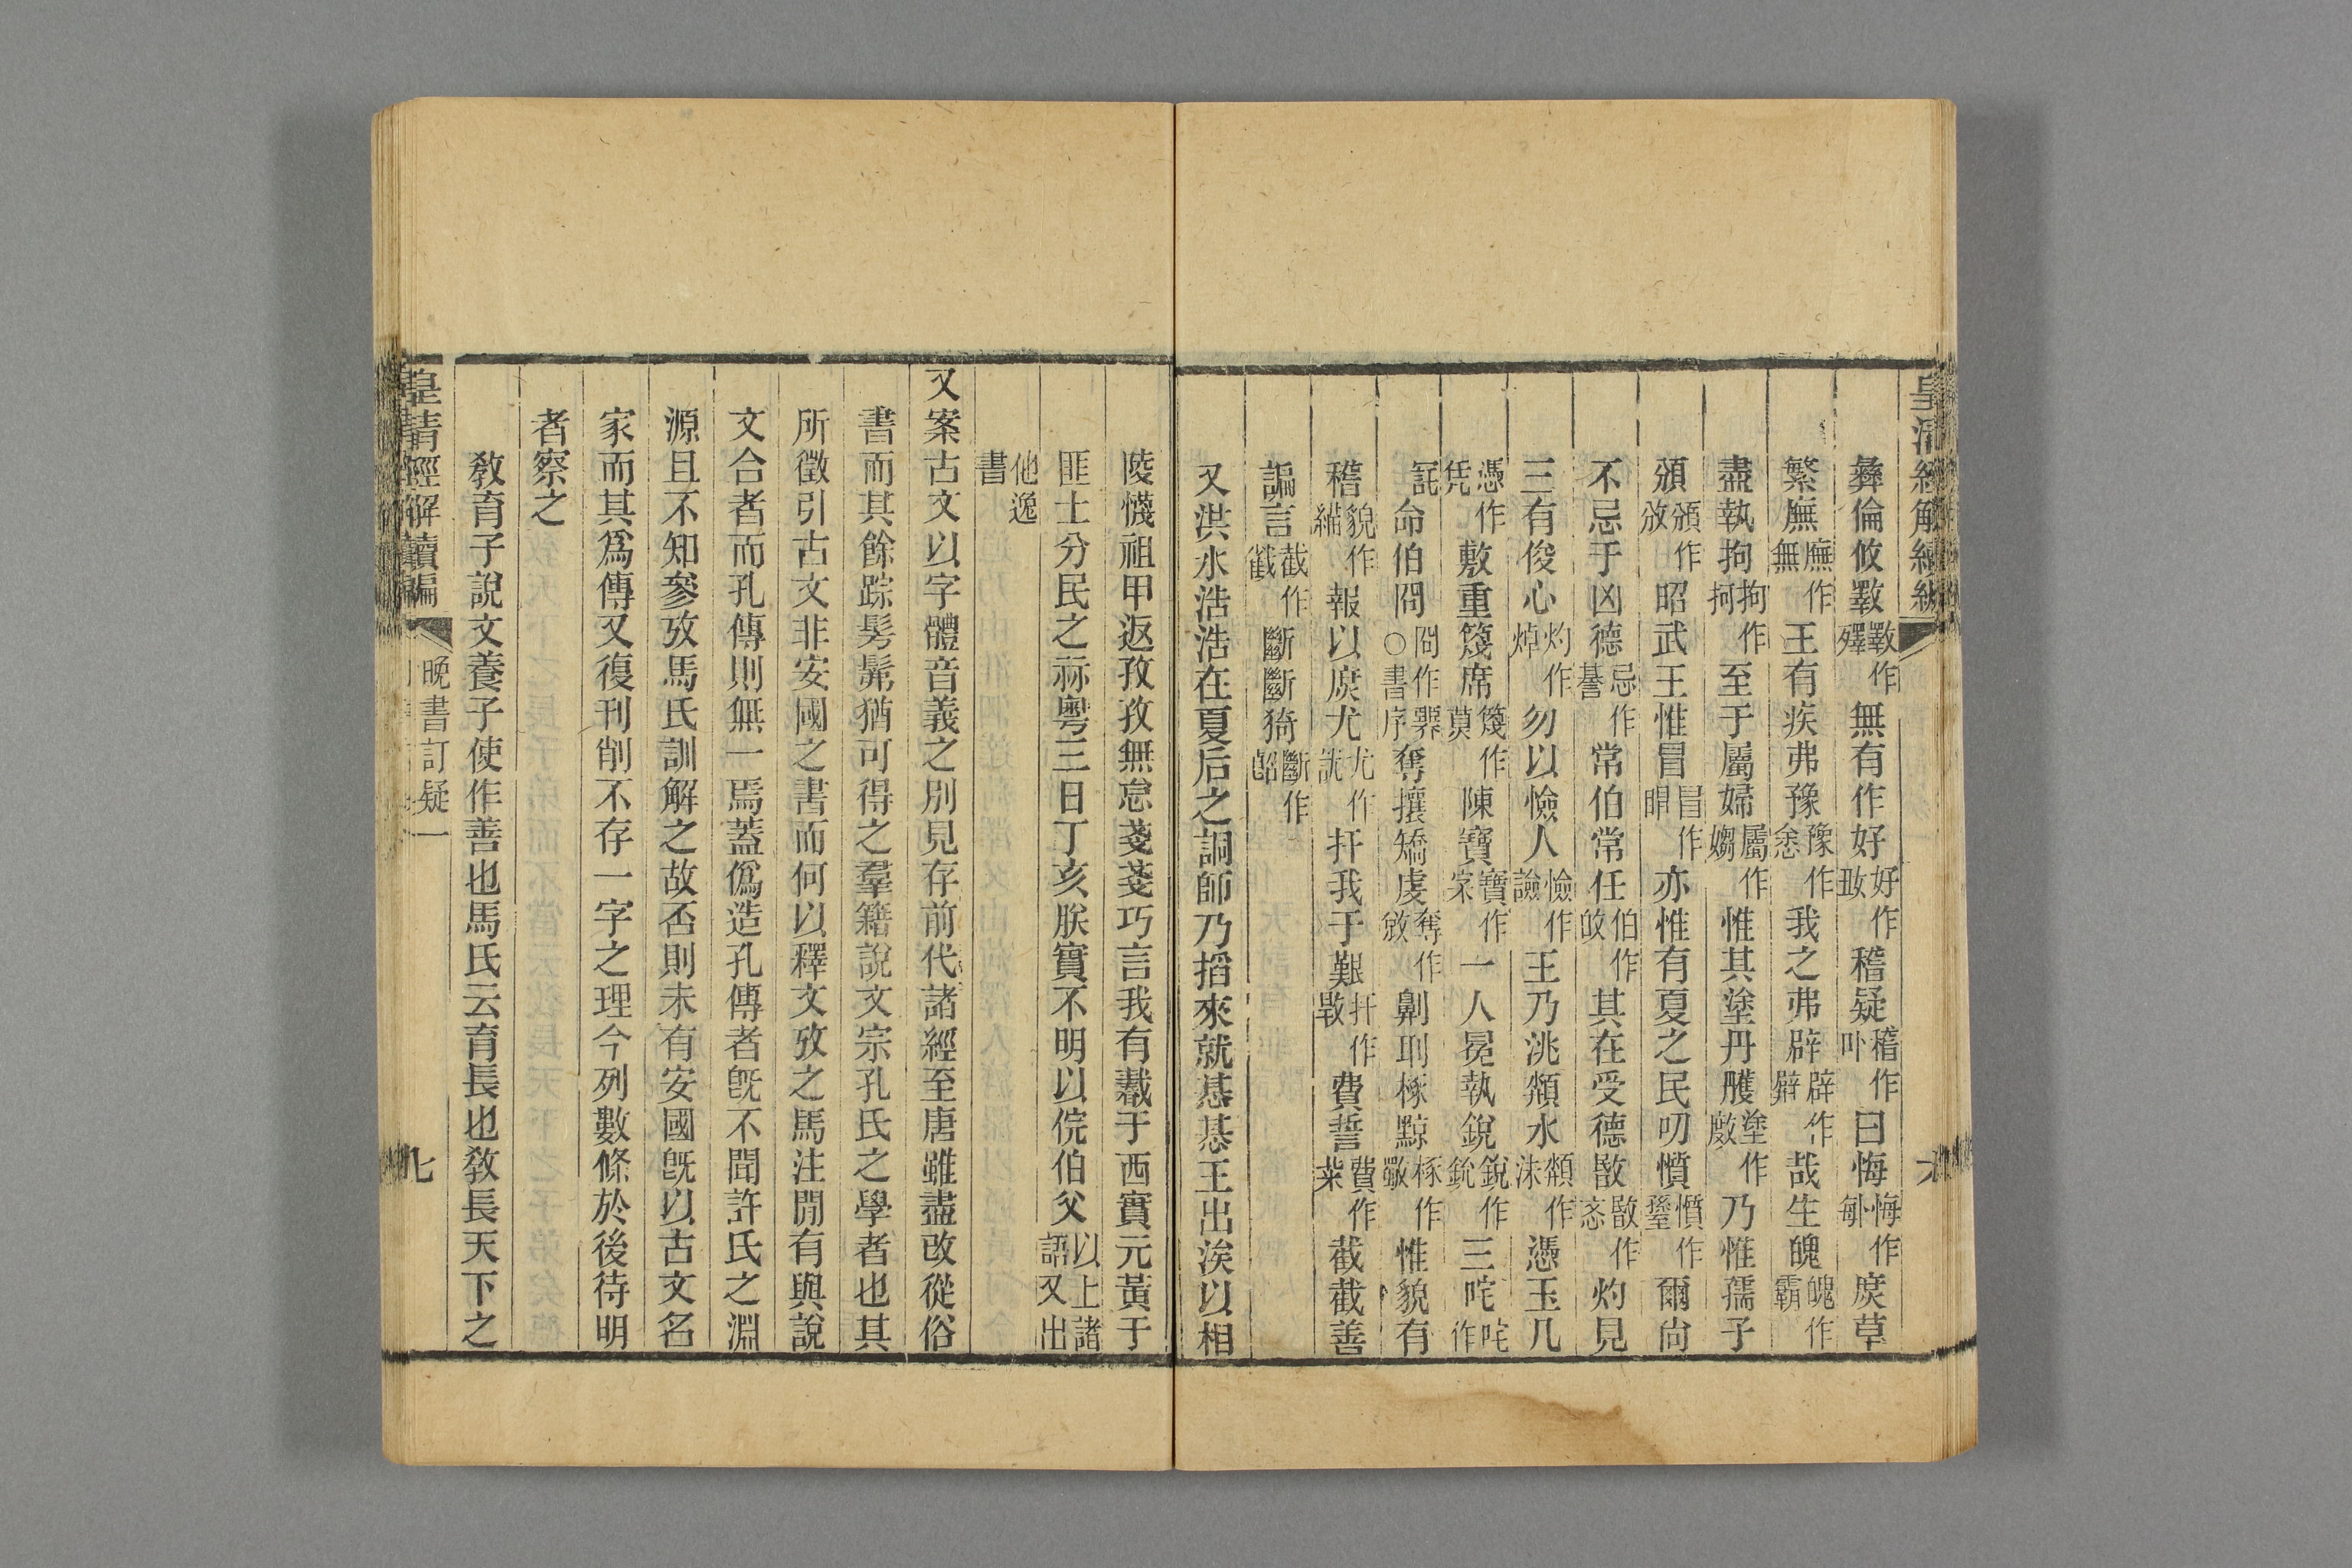 皇清經解續編
彝倫攸斁斁作殬無有作好好作𡚽稽疑稽作卟曰悔悔作𠧩庶草
繁廡廡作無王有疾弗豫豫作悆我之弗辟辟作𨐨哉生魄魄作霸
盡執拘拘作抲至于屬婦屬作媰惟其塗丹雘塗作𢾖乃惟孺子
頒頒作攽昭武王惟冒冒作䀤亦惟有夏之民叨懫懫作𡠗爾尙
不忌于凶德忌作諅常伯常任伯作敀其在受德暋暋作忞灼見
三有俊心灼作焯勿以憸人憸作譣王乃洮頮水頮作沬憑玉几
憑作凭敷重篾席篾作莫陳寶寶作宲一人冕執銳銳作鈗三咤咤作
詫命伯冏冏作臩○書序奪攘矯虔奪作敓劓刵椓黥椓作斀惟貌有
稽貌作緢報以庶尤尤作訧扞我于艱扞作𢾕費誓費作粊截截善
諞言截作㦻斷斷猗斷作𠸿
又洪水浩浩在夏后之詷師乃搯來就惎惎王出涘以相
陵懱祖甲返孜孜無怠戔戔巧言我有𧝑于西實元黃于
匪士分民之祘粵三日丁亥朕實不明以俒伯父以上諸語又出
他逸書
又案古文以字體音義之別見存前代諸經至唐雖盡改從俗
書而其餘踪髣髴猶可得之羣籍說文宗孔氏之學者也其
所徵引古文非安國之書而何以釋文攷之馬注閒有與說
文合者而孔傳則無一焉蓋僞造孔傳者旣不聞許氏之淵
源且不知參攷馬氏訓解之故否則未有安國旣以古文名
家而其爲傳又復刊削不存一字之理今列數條於後待明
者察之
敎育子說文養子使作善也馬氏云育長也敎長天下之
皇清經解續編 晚書訂疑一 七